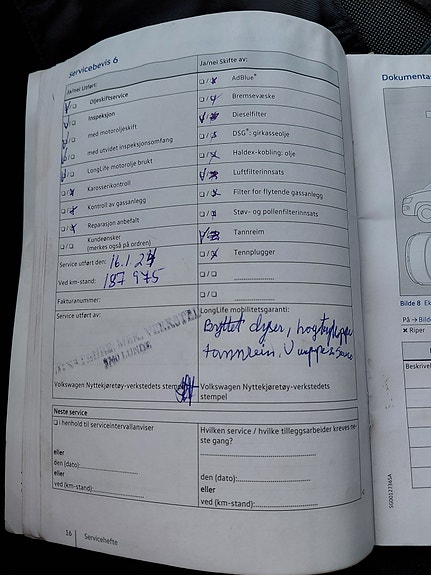 Servicebevis 6
Ja/nei Utført:
Oljeskiftservice
Inspeksjon
med motoroljeskift
med utvidet inspeksjonsomfang
LongLife motorolje brukt
Karosserikontroll
Kontroll av gassanlegg
Reparasjon anbefalt
Kundeønsker
(merkes også på ordren)
Service utført den: 16.1 24
Ved km-stand: 187 975
Fakturanummer:
Service utført av:
Volkswagen Nyttekjøretøy-verkstedets stempel
Ja/nei Skifte av:
AdBlue®
Bremsevæske
Dieselfilter
DSG®: girkasseolje
Haldex-kobling: olje
Luftfilterinnsats
Filter for flytende gassanlegg
Støv- og pollenfilterinnsats
Tannreim
Tennplugger
LongLife mobilitetsgaranti:
Byttet dyser,
tannreim, V
Volkswagen Nyttekjøretøy-verkstedets
stempel
Neste service
i henhold til serviceintervallanviser
eller
den (dato):
eller
ved (km-stand):
Hvilken service / hvilke tilleggsarbeider kreves ne-
ste gang?
den (dato):
eller
ved (km-stand):
16 Servicehefte
Dokumentas
Bilde 8 Ek
På → Bilde
× Riper
Beskrivel
SG0012736SA